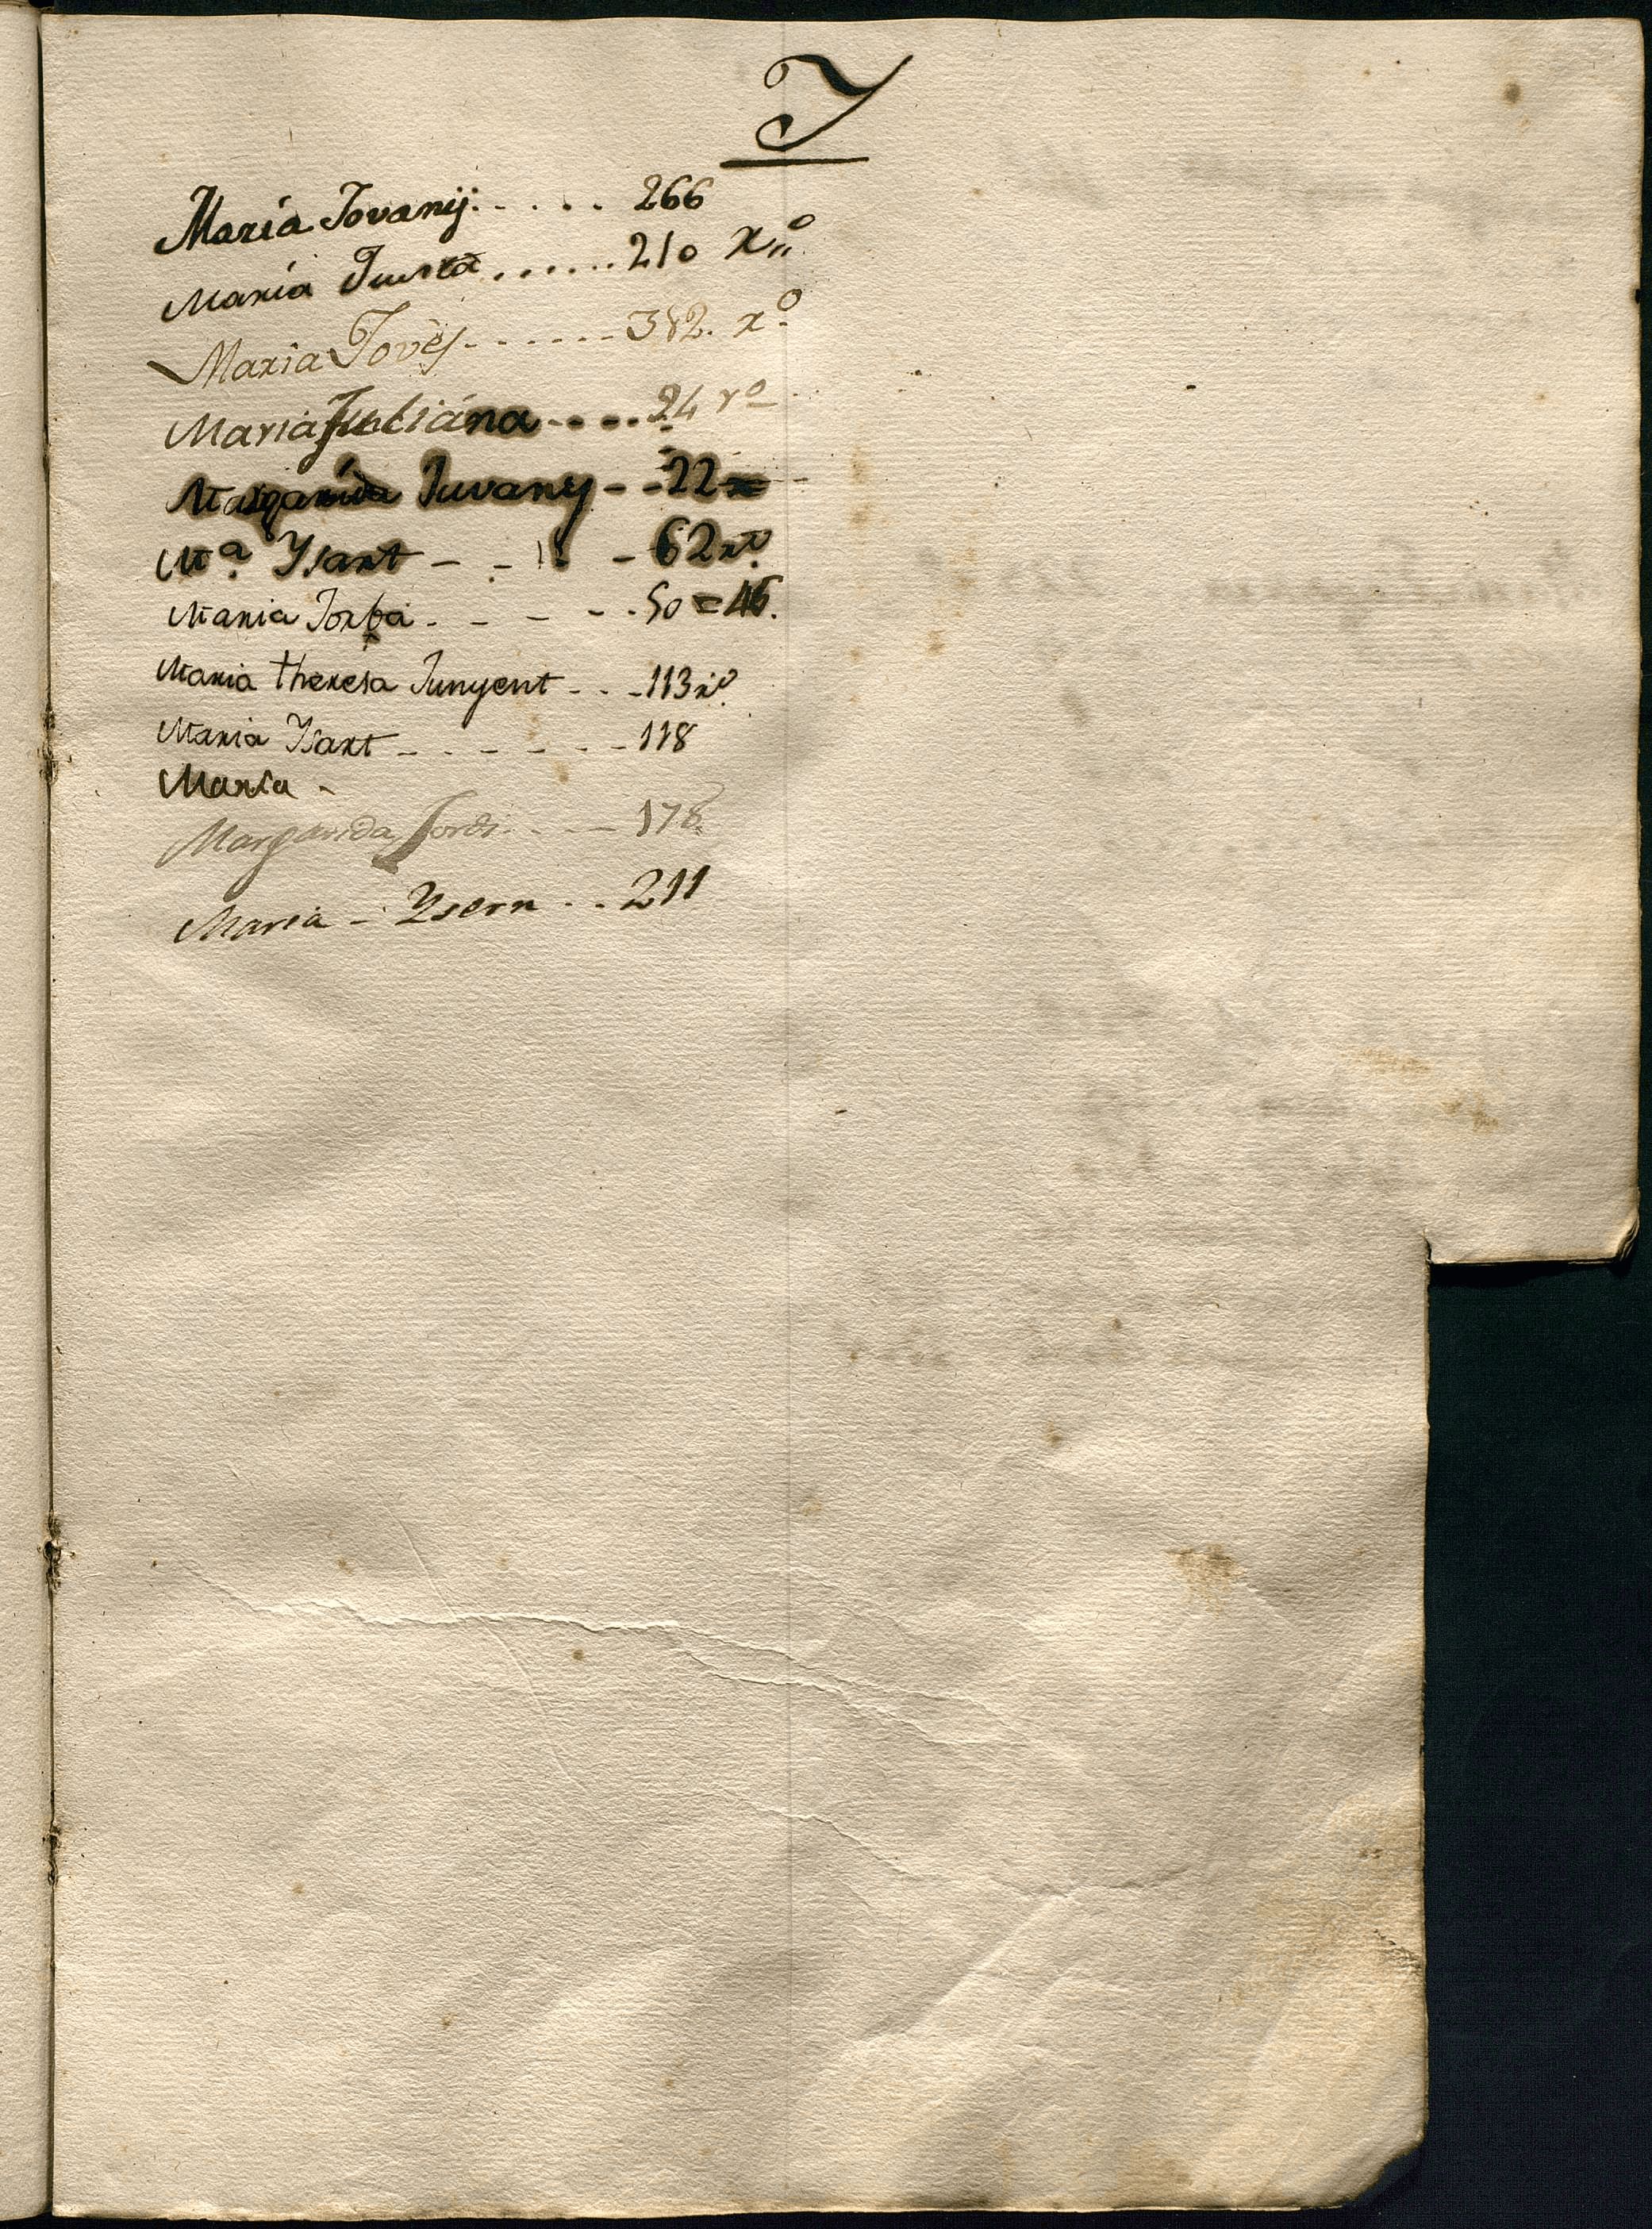 J
Maria Jovanij. - . . . . 266
Maria Justa . . . . . . 210 rº
Maria Jovêj - - - - - - - 382. rº
Maria Juliána - - - - . 24 rº
Margarida Juvany - - 22
Mª. Ysart - - - 62 rº.
Maria Jorba - - - - . 50 = 46.
Maria theresa Junyent - . - 113 rº.
Maria Ysart - - - - - - - 118
Maria -
Margarida Jordi. - - - - 178.
Maria - Ysern . . 211